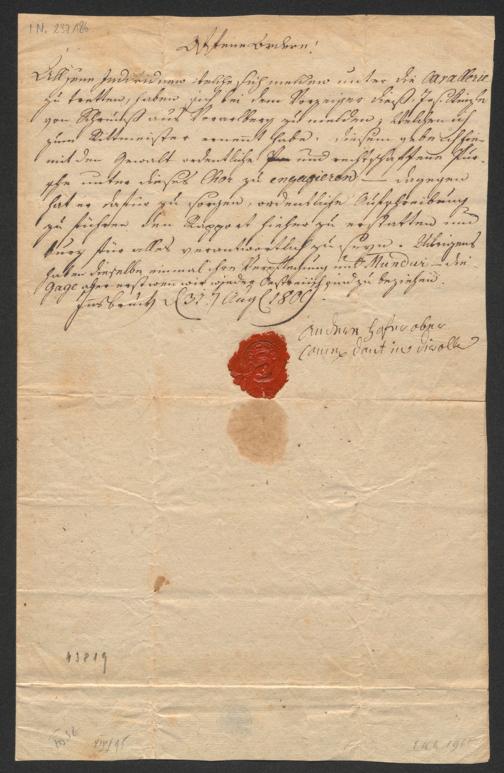 I N. 237186
Offene Ordern!
Alle jene Individuen welche sich melden unter die Cavallerie
zu tretten, haben sich bei dem Vorzeiger dieß,
von Schruns aus Vorarlberg zu melden; Welchen ich
zum Rittmeister ernennt habe. diesem gebe ich hie-
mit den Gewalt ordentliche und rechtschaffene Pur-
sche unter dieses Chor zu engagieren — dagegen
hat er dafür zu sorgen, ordentliche Aufschreibung
zu führen den Rapport hieher zu erstatten und
kurz für alles verantwortlich zu seyn. Übrigens
haben dieselbe einmal ihre Verpflegung und Mundur — die
Gage aber erst wen wir wieder Oestreich sind zu beziehen.
Innsbruck 31 Aug 1809
Andere Hofer ober
Comendant in diroll
43819